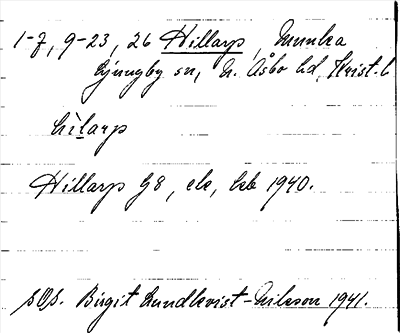 1-7, 9-23, 26 Hillarp, Munka
Ljungby sn, N. Åsbo hd, Krist. l
hìlarp
Hillarp G8, ek, leb 1940.
SOS. Birgit Lundkvist-Nilsson 1941.